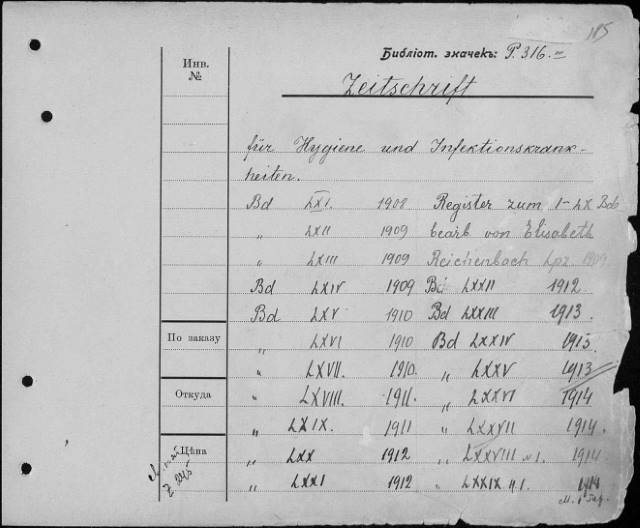 185
Библіот. значекъ: P.316.=
Инв.
№
Zeitschrift
für Hygiene und Infektionskrank-
heiten.
Bd LXI. 1908 Register zum I-LX Bde
„ LXII 1909 bearb von Elisabeth
„ LXIII 1909 Reichenbach Lpz 1909.
Bd LXIV 1909 Bd LXXII 1912
Bd LXV 1910 Bd LXXIII 1913.
По заказу „ LXVI 1910 Bd LXXIV 1913.
„ LXVII. 1910. „ LXXV 1913
Откуда „ LXVIII. 1911. „ LXXVI 1914
„ LXIX. 1911 „ LXXVII 1914.
Цѣна „ LXX 1912 „ LXXVIII н1. 1914
„ LXXI 1912 „ LXXIX н.1. 1914